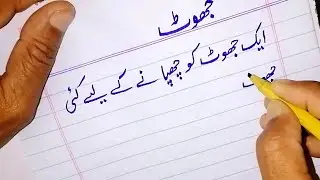 جھوٹ
ایک جھوٹ کو چھپانے کے لیے کئی